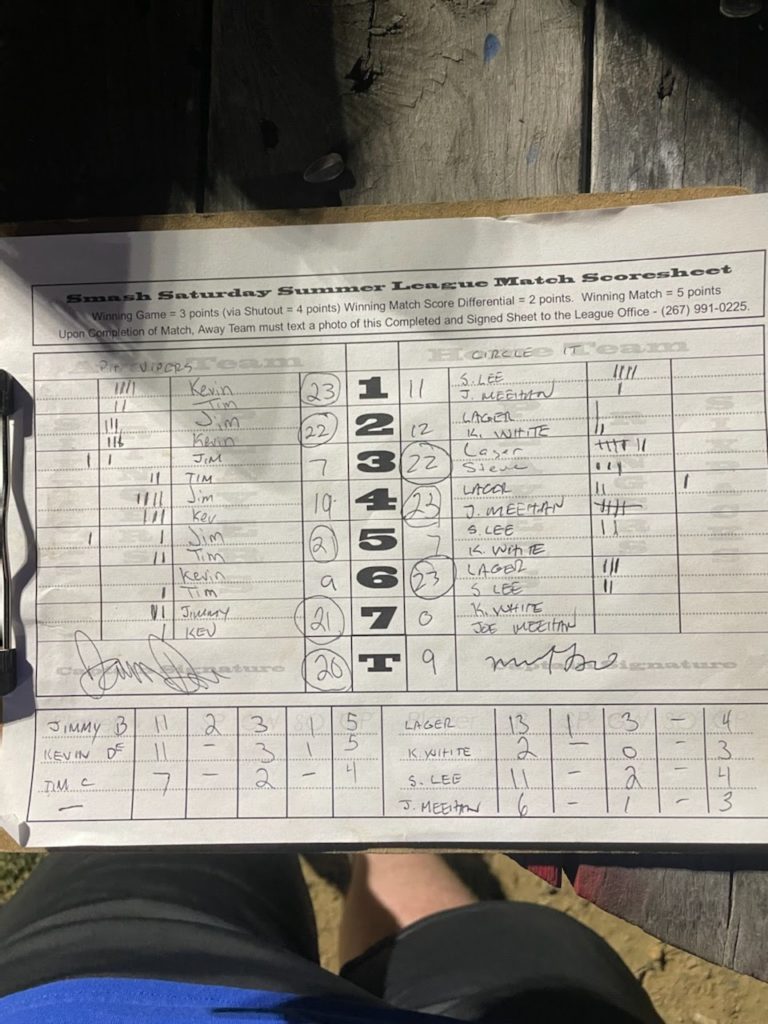 Smash Saturday Summer League Match Scoresheet
Winning Game = 3 points (via Shutout = 4 points) Winning Match Score Differential = 2 points. Winning Match = 5 points
Upon Completion of Match, Away Team must text a photo of this Completed and Signed Sheet to the League Office - (267) 991-0225.
PIT VIPERS Team CIRCLE IT Home Team
Kevin 23 1 11 S. LEE
Tim J. MEEHAN
Jim 22 2 12 LAGER
Kevin K. WHITE
JIM 7 3 22 Lager
TIM Steve
Jim 19 4 23 LAGER
Kev J. MEEHAN
Jim 21 5 7 S. LEE
Tim K. WHITE
Kevin 9 6 23 LAGER
Tim S LEE
Jimmy 21 7 0 K. WHITE
KEV JOE MEEHAN
Signature 20 T 9 Signature
JIMMY B 11 2 3 1 5 LAGER 13 1 3 - 4
KEVIN DE 11 - 3 1 5 K. WHITE 2 - 0 - 3
TIM C 7 - 2 - 4 S. LEE 11 - 2 - 4
- J. MEEHAN 6 - 1 - 3